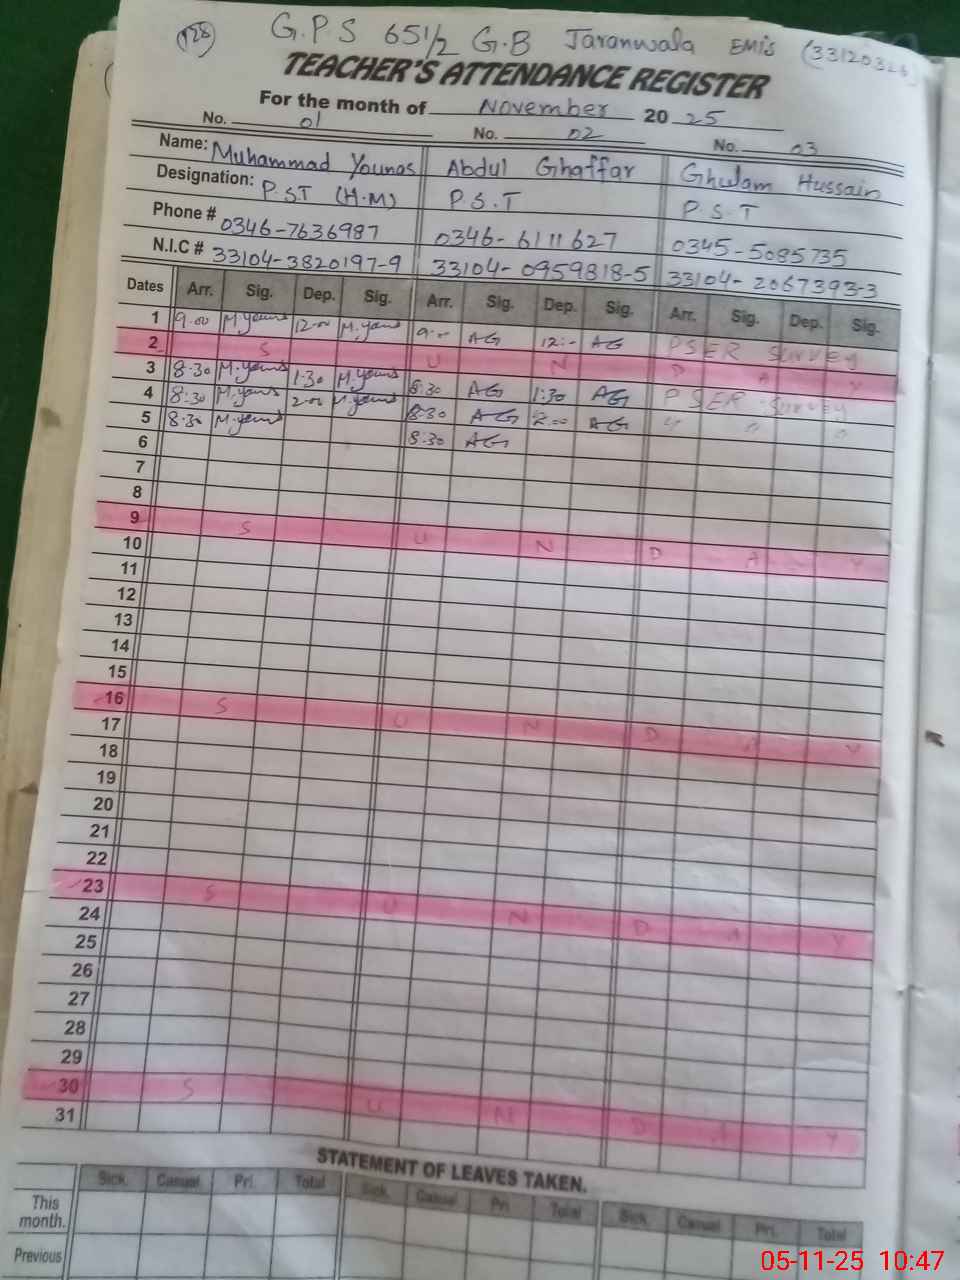 128
G.P.S 651/2 G.B Jaranwala EMIS (33120326)
TEACHER'S ATTENDANCE REGISTER
For the month of November 2025
No. 01 No. 02 No. 03
Name: Muhammad Younas Abdul Ghaffar Ghulam Hussain
Designation: P.ST (H.M) P.S.T P.S.T
Phone # 0346-7636987 0346-6111627 0345-5085735
N.I.C # 33104-3820197-9 33104-0959818-5 33104-2067393-3
Dates Arr. Sig. Dep. Sig. Arr. Sig. Dep. Sig. Arr. Sig. Dep. Sig.
1 9.00 M.younas 12.00 M.younas 9.- AG 12:- AG PSER Survey
2 S U N D A Y
3 8.30 M.younas 1:30 M.younas 8:30 AG 1:30 AG PSER Survey
4 8:30 M.younas 2.00 M.younas 8:30 AG 2.00 AG " " "
5 8:30 M.younas 8:30 AG
6
7
8
9 S U N D A Y
10
11
12
13
14
15
16 S U N D A Y
17
18
19
20
21
22
23 S U N D A Y
24
25
26
27
28
29
30 S U N D A Y
31
STATEMENT OF LEAVES TAKEN.
Sick. Casual Pri. Total Sick. Casual Pri. Total Sick. Casual Pri. Total
This month.
Previous
05-11-25 10:47